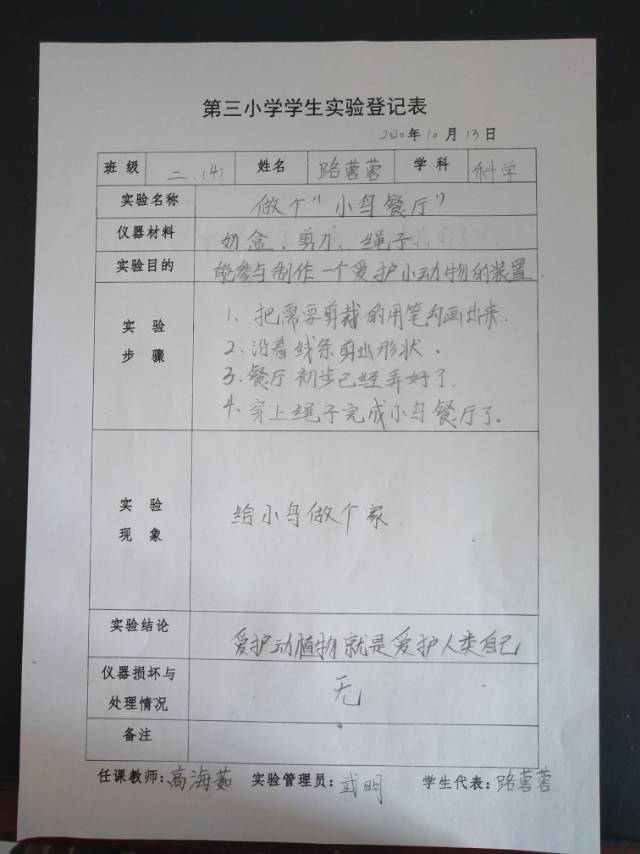 第三小学学生实验登记表
2020年10月13日
班级 二.(4) 姓名 路蓉蓉 学科 科学
实验名称 做个"小鸟餐厅"
仪器材料 奶盒、剪刀、绳子
实验目的 能参与制作一个爱护小动物的装置.
实验步骤
1、把需要剪裁的用笔勾画出来.
2.沿着线条剪出形状.
3.餐厅初步已经弄好了.
4.穿上绳子完成小鸟餐厅了.
实验现象 给小鸟做个家.
实验结论 爱护动植物就是爱护人类自己
仪器损坏与处理情况 无
备注
任课教师:高海茹 实验管理员:武明 学生代表:路蓉蓉